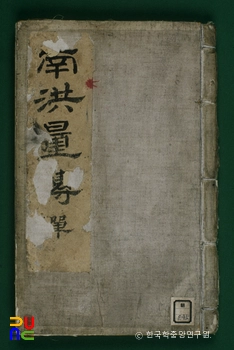 南洪量單
© 한국학중앙연구원